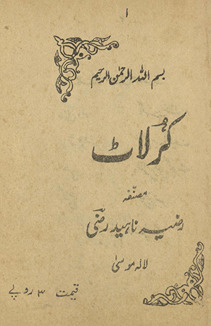 ۱
بسم اللہ الرحمٰن الرحیم
کُرلاٹ
مصنفہ
رضیہ ناہید رضیؔ
لالہ موسیٰ
قیمت ۳ روپے